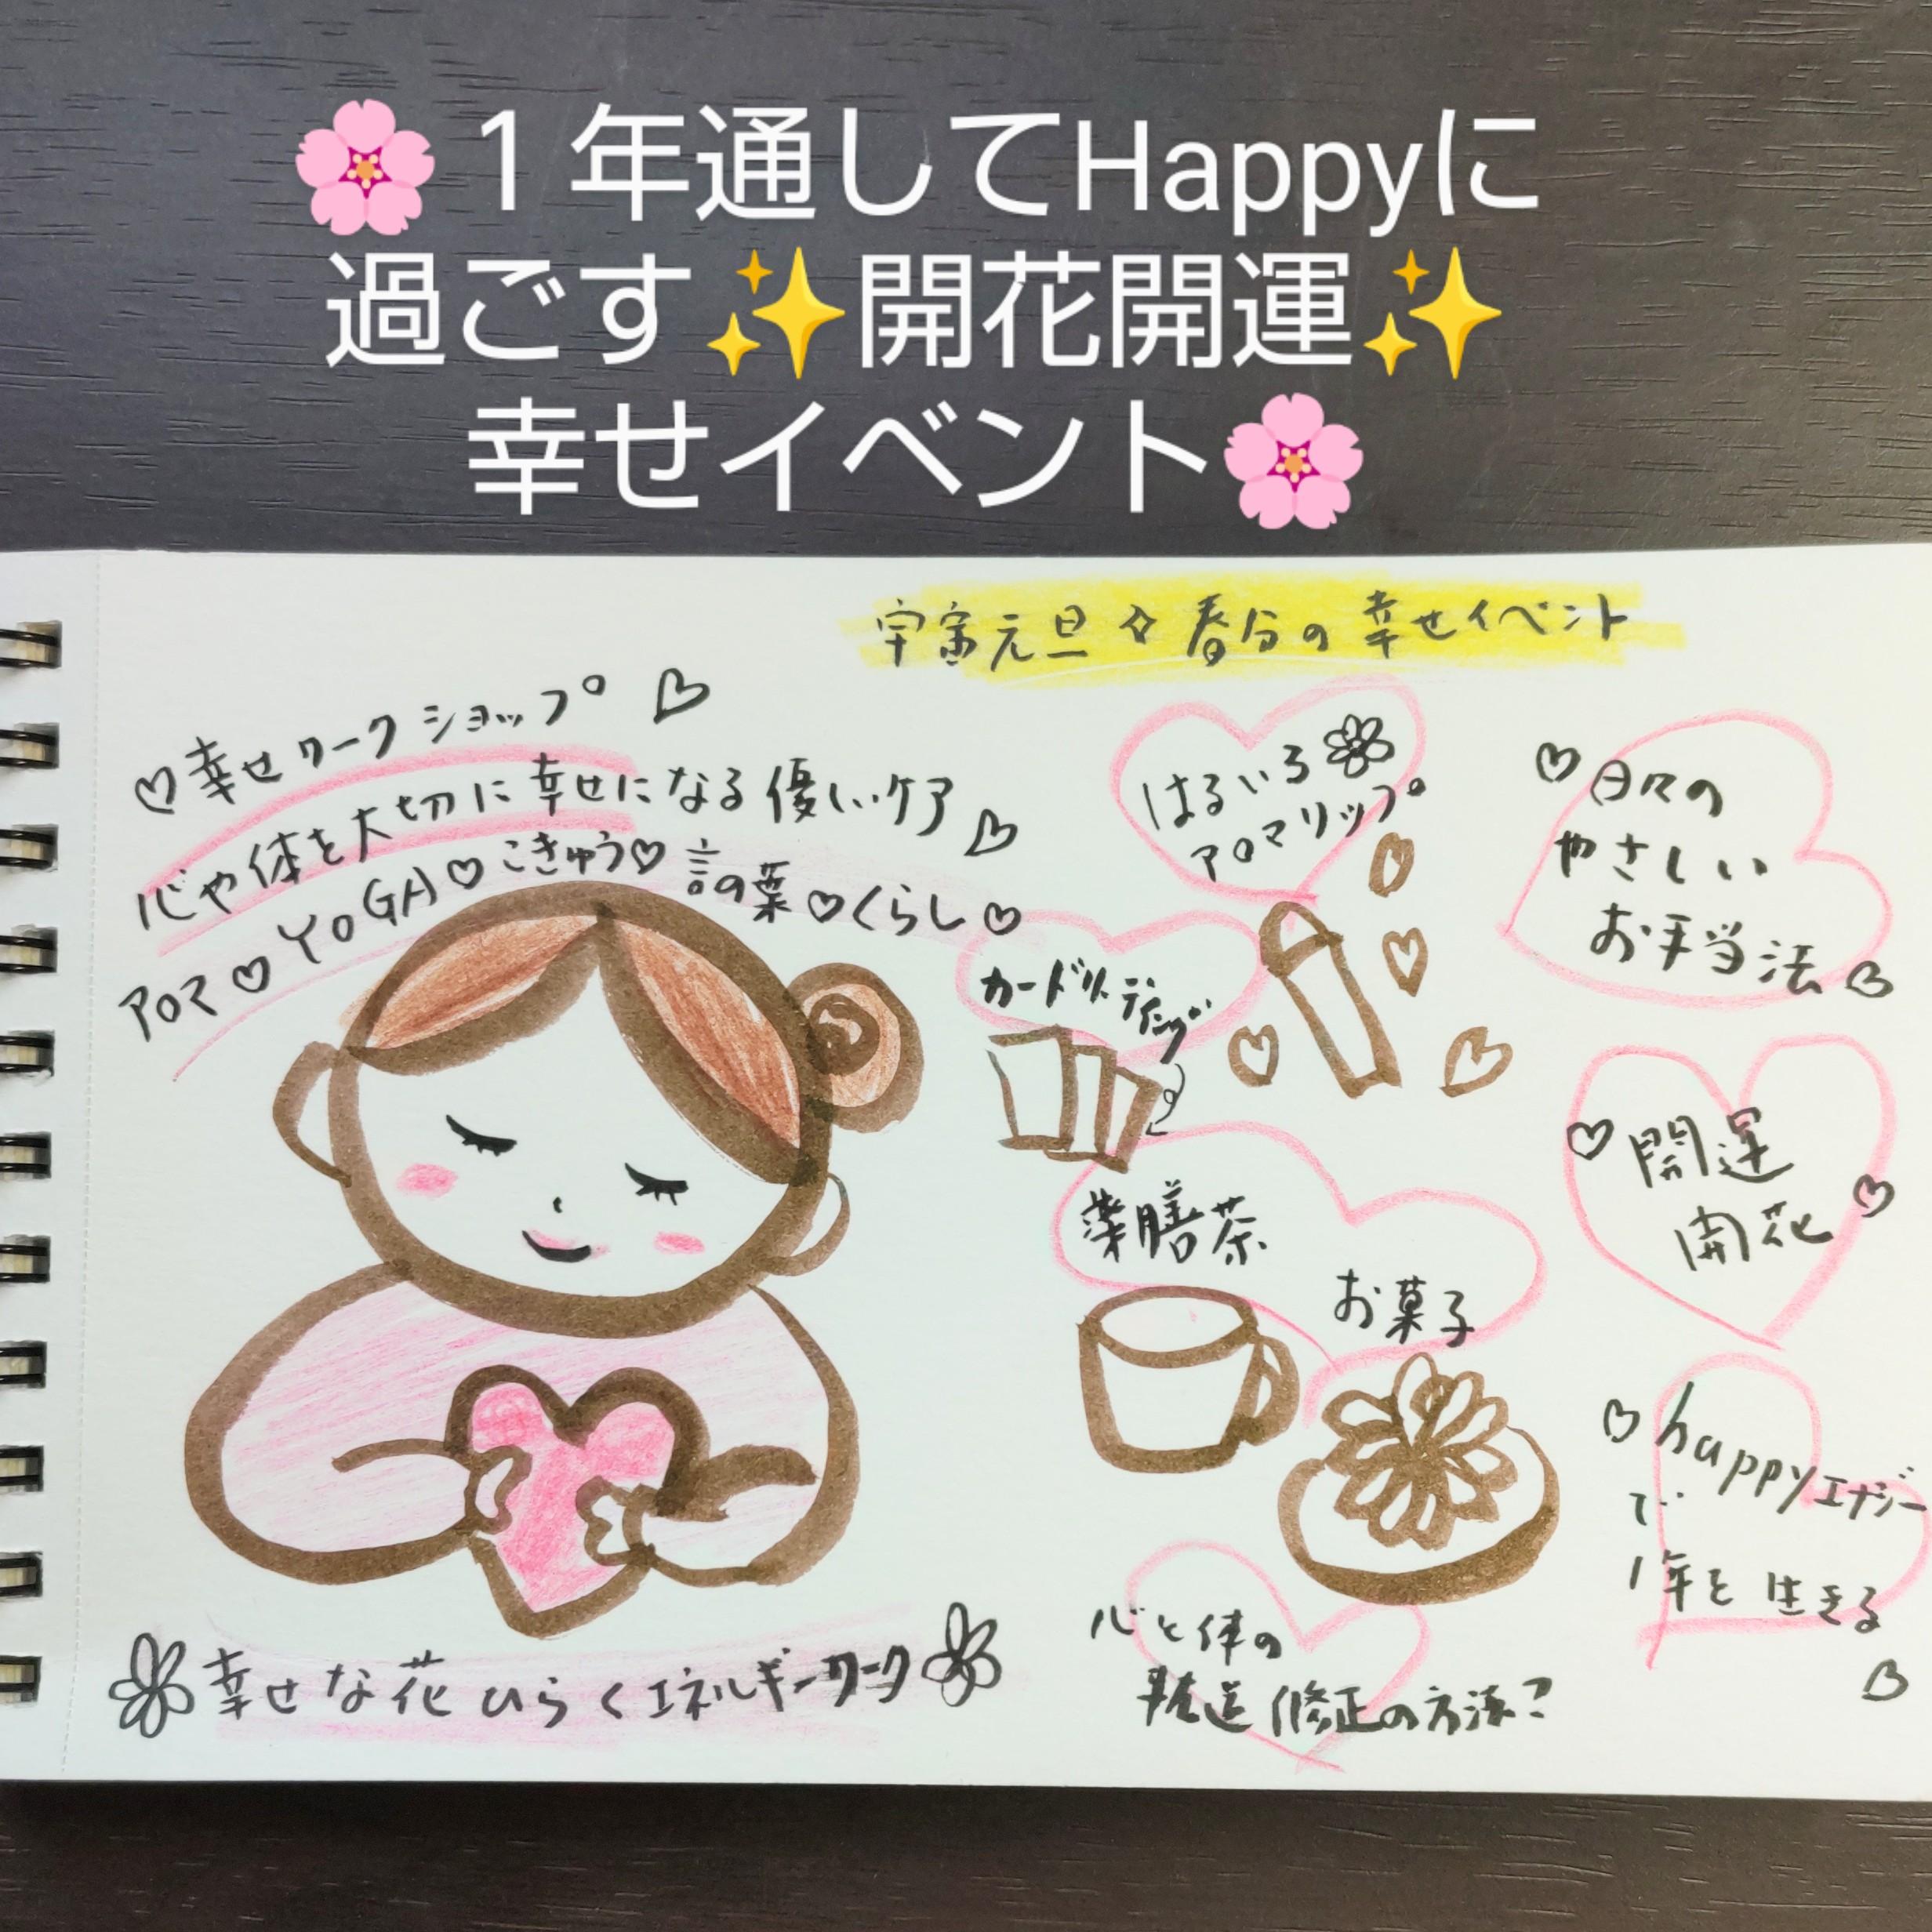 🌸１年通してHappyに
過ごす✨開花開運✨
幸せイベント🌸
宇宙元旦✧春分の幸せイベント
♡幸せワークショップ♡
心や体を大切に幸せになる優しいケア♡
アロマ♡YOGA♡こきゅう♡言の葉♡くらし♡
はるいろ
アロマリップ
カードリーディング
薬膳茶
お菓子
心と体の
軌道修正の方法?
♡日々の
やさしい
お手当法♡
♡開運
開花♡
♡happyエナジー
で
1年を生きる
♡
幸せな花ひらくエネルギーワーク